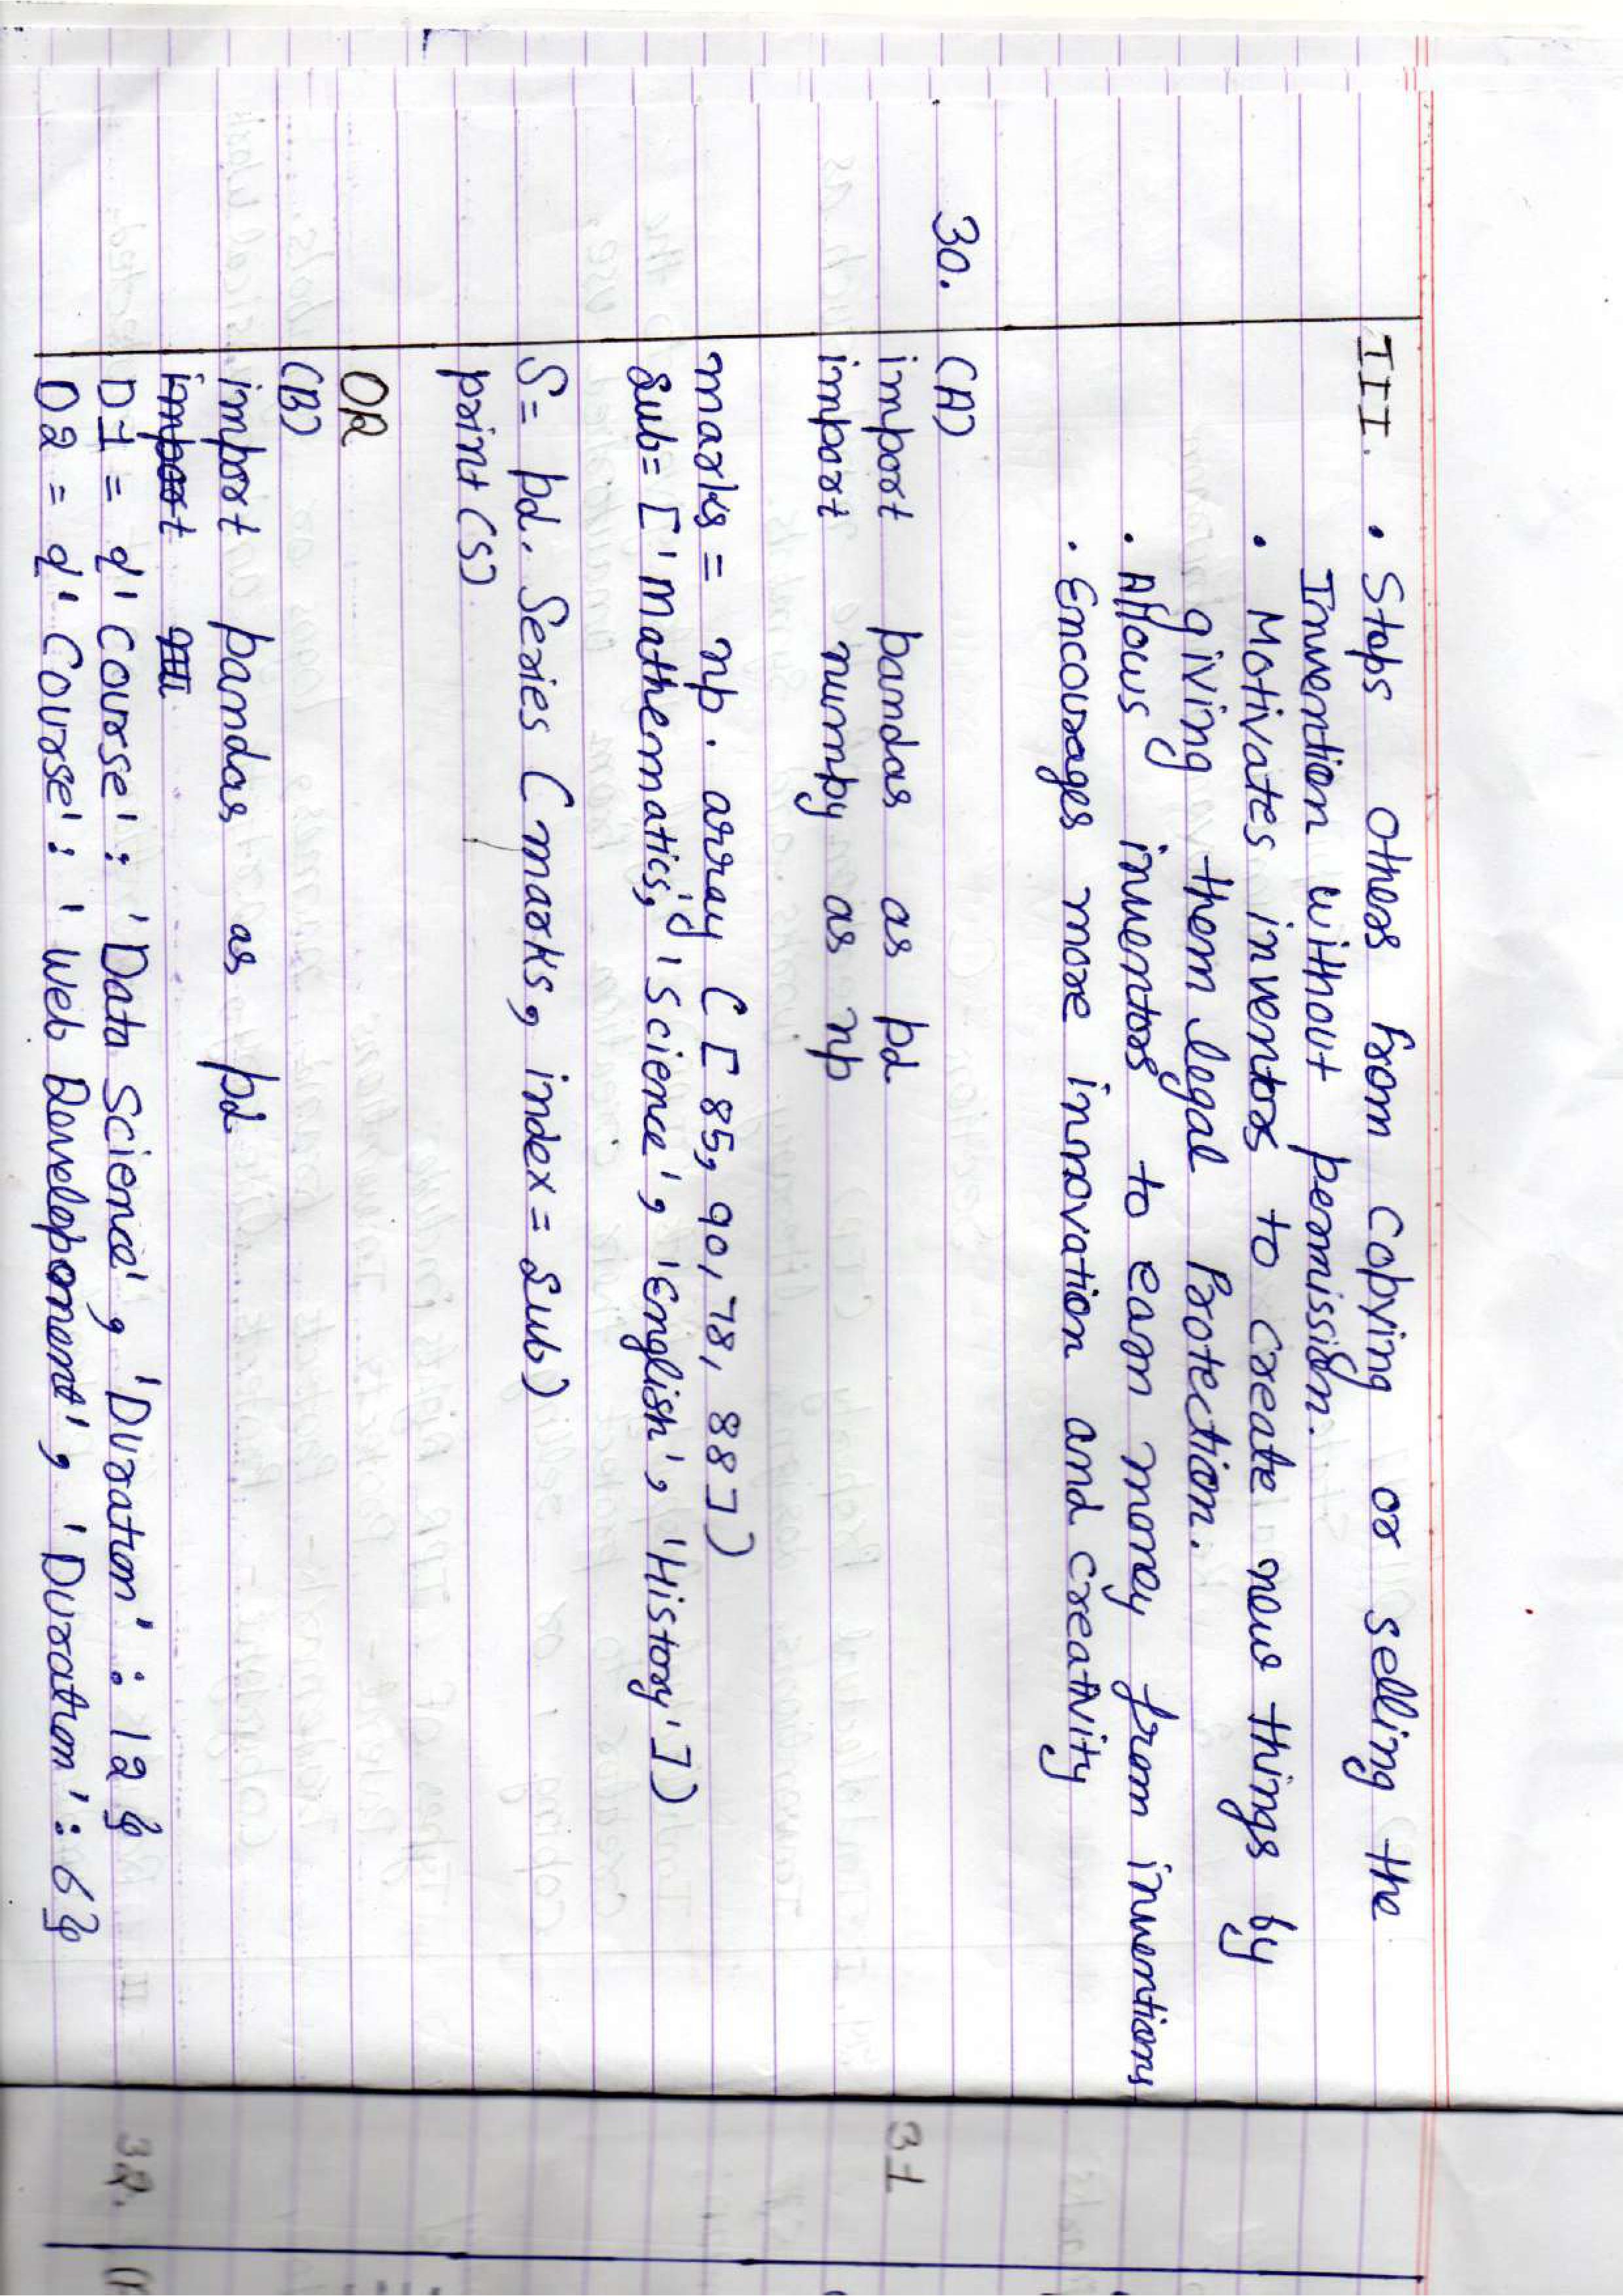 III. • Stops others from copying or selling the
Invention without permission.
• Motivates inventors to create new things by
giving them legal Protection.
• Allows inventors to earn money from inventions
• Encourages more innovation and creativity
30. (A)
import pandas as pd
import numpy as np
marks = np. array ([85, 90, 78, 88])
Sub= ['Mathematics', 'Science', 'English', 'History'])
S= pd. Series (marks, index = Sub)
print (S)
OR
(B)
import pandas as pd
import
D1 = {'Course': 'Data Science', 'Duration' : 12}
D2 = {'Course': 'Web Development', 'Duration': 6}
31
32.